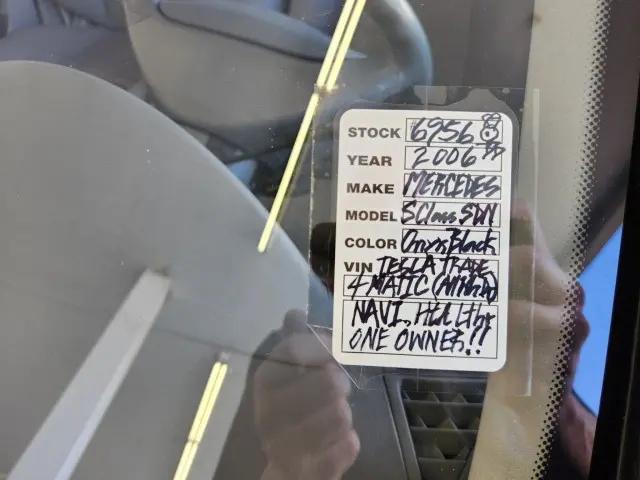 STOCK 6956
YEAR 2006
MAKE MERCEDES
MODEL SClass SDN
COLOR Onyx Black
VIN TESLA TRADE
4 MATIC
NAVI, HEALthy
ONE OWNER!!